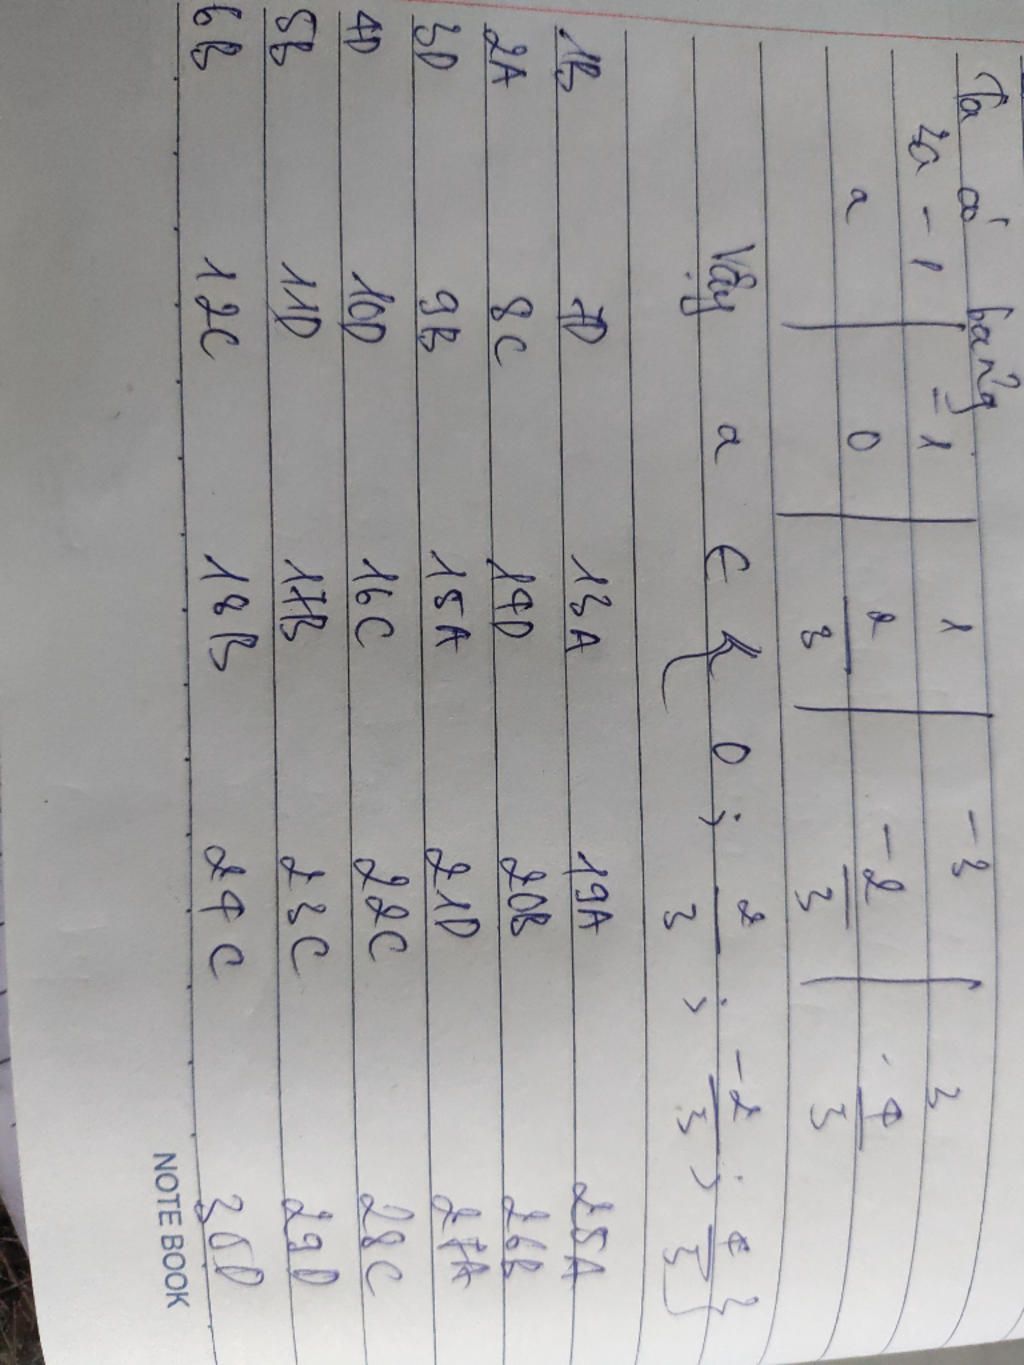 Ta có bảng
3a - 1 | -1 | 1 | -3 | 3
a | 0 | 2/3 | -2/3 | 4/3
Vậy a ∈ { 0 ; 2/3 ; -2/3 ; 4/3 }
1B 7D 13A 19A 25A
2A 8C 14D 20B 26B
3D 9B 15A 21D 27A
4D 10D 16C 22C 28C
5B 11D 17B 23C 29D
6B 12C 18B 24C 30D
NOTE BOOK